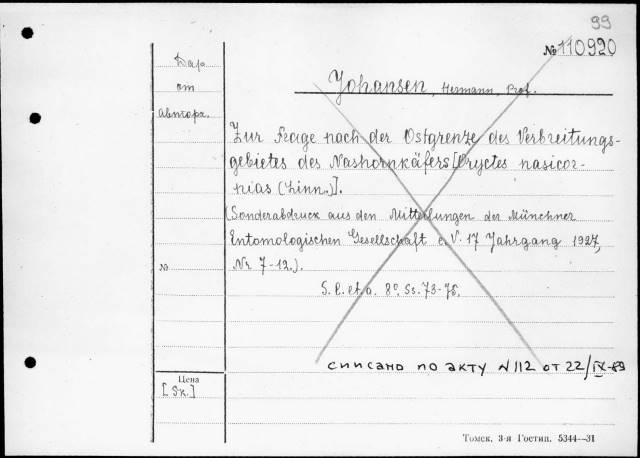 99
№ 110920
Дар
от
авторa.
Johansen, Hermann, Prof.
Zur Frage nach der Ostgrenze des Verbreitungs-
gebietes des Nashornkäfers [Oryctes nasicor-
nias (Linn.)].
(Sonderabdruck aus den Mitteilungen der Münchner
Entomologischen Gesellschaft e. V. 17 Jahrgang 1927,
Nr 7-12.).
№
S. l. et a. 8° Ss. 73-75.
списано по акту N 112 от 22/IX-89
Цена
[5к.]
Томск, 3-я Гостип. 5344—31